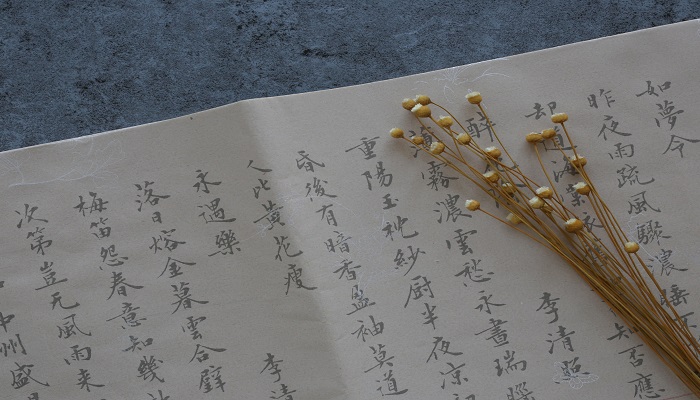 如夢令
昨夜雨疏風驟濃睡不
却道海棠 知否應
醉 李清照
薄霧濃雲愁永晝瑞腦
重陽玉枕紗厨半夜凉初
昏後有暗香盈袖莫道
人比黃花瘦
永遇樂 李清
落日熔金暮雲合璧
梅笛怨春意知幾許
次第豈无風雨來
中州盛日